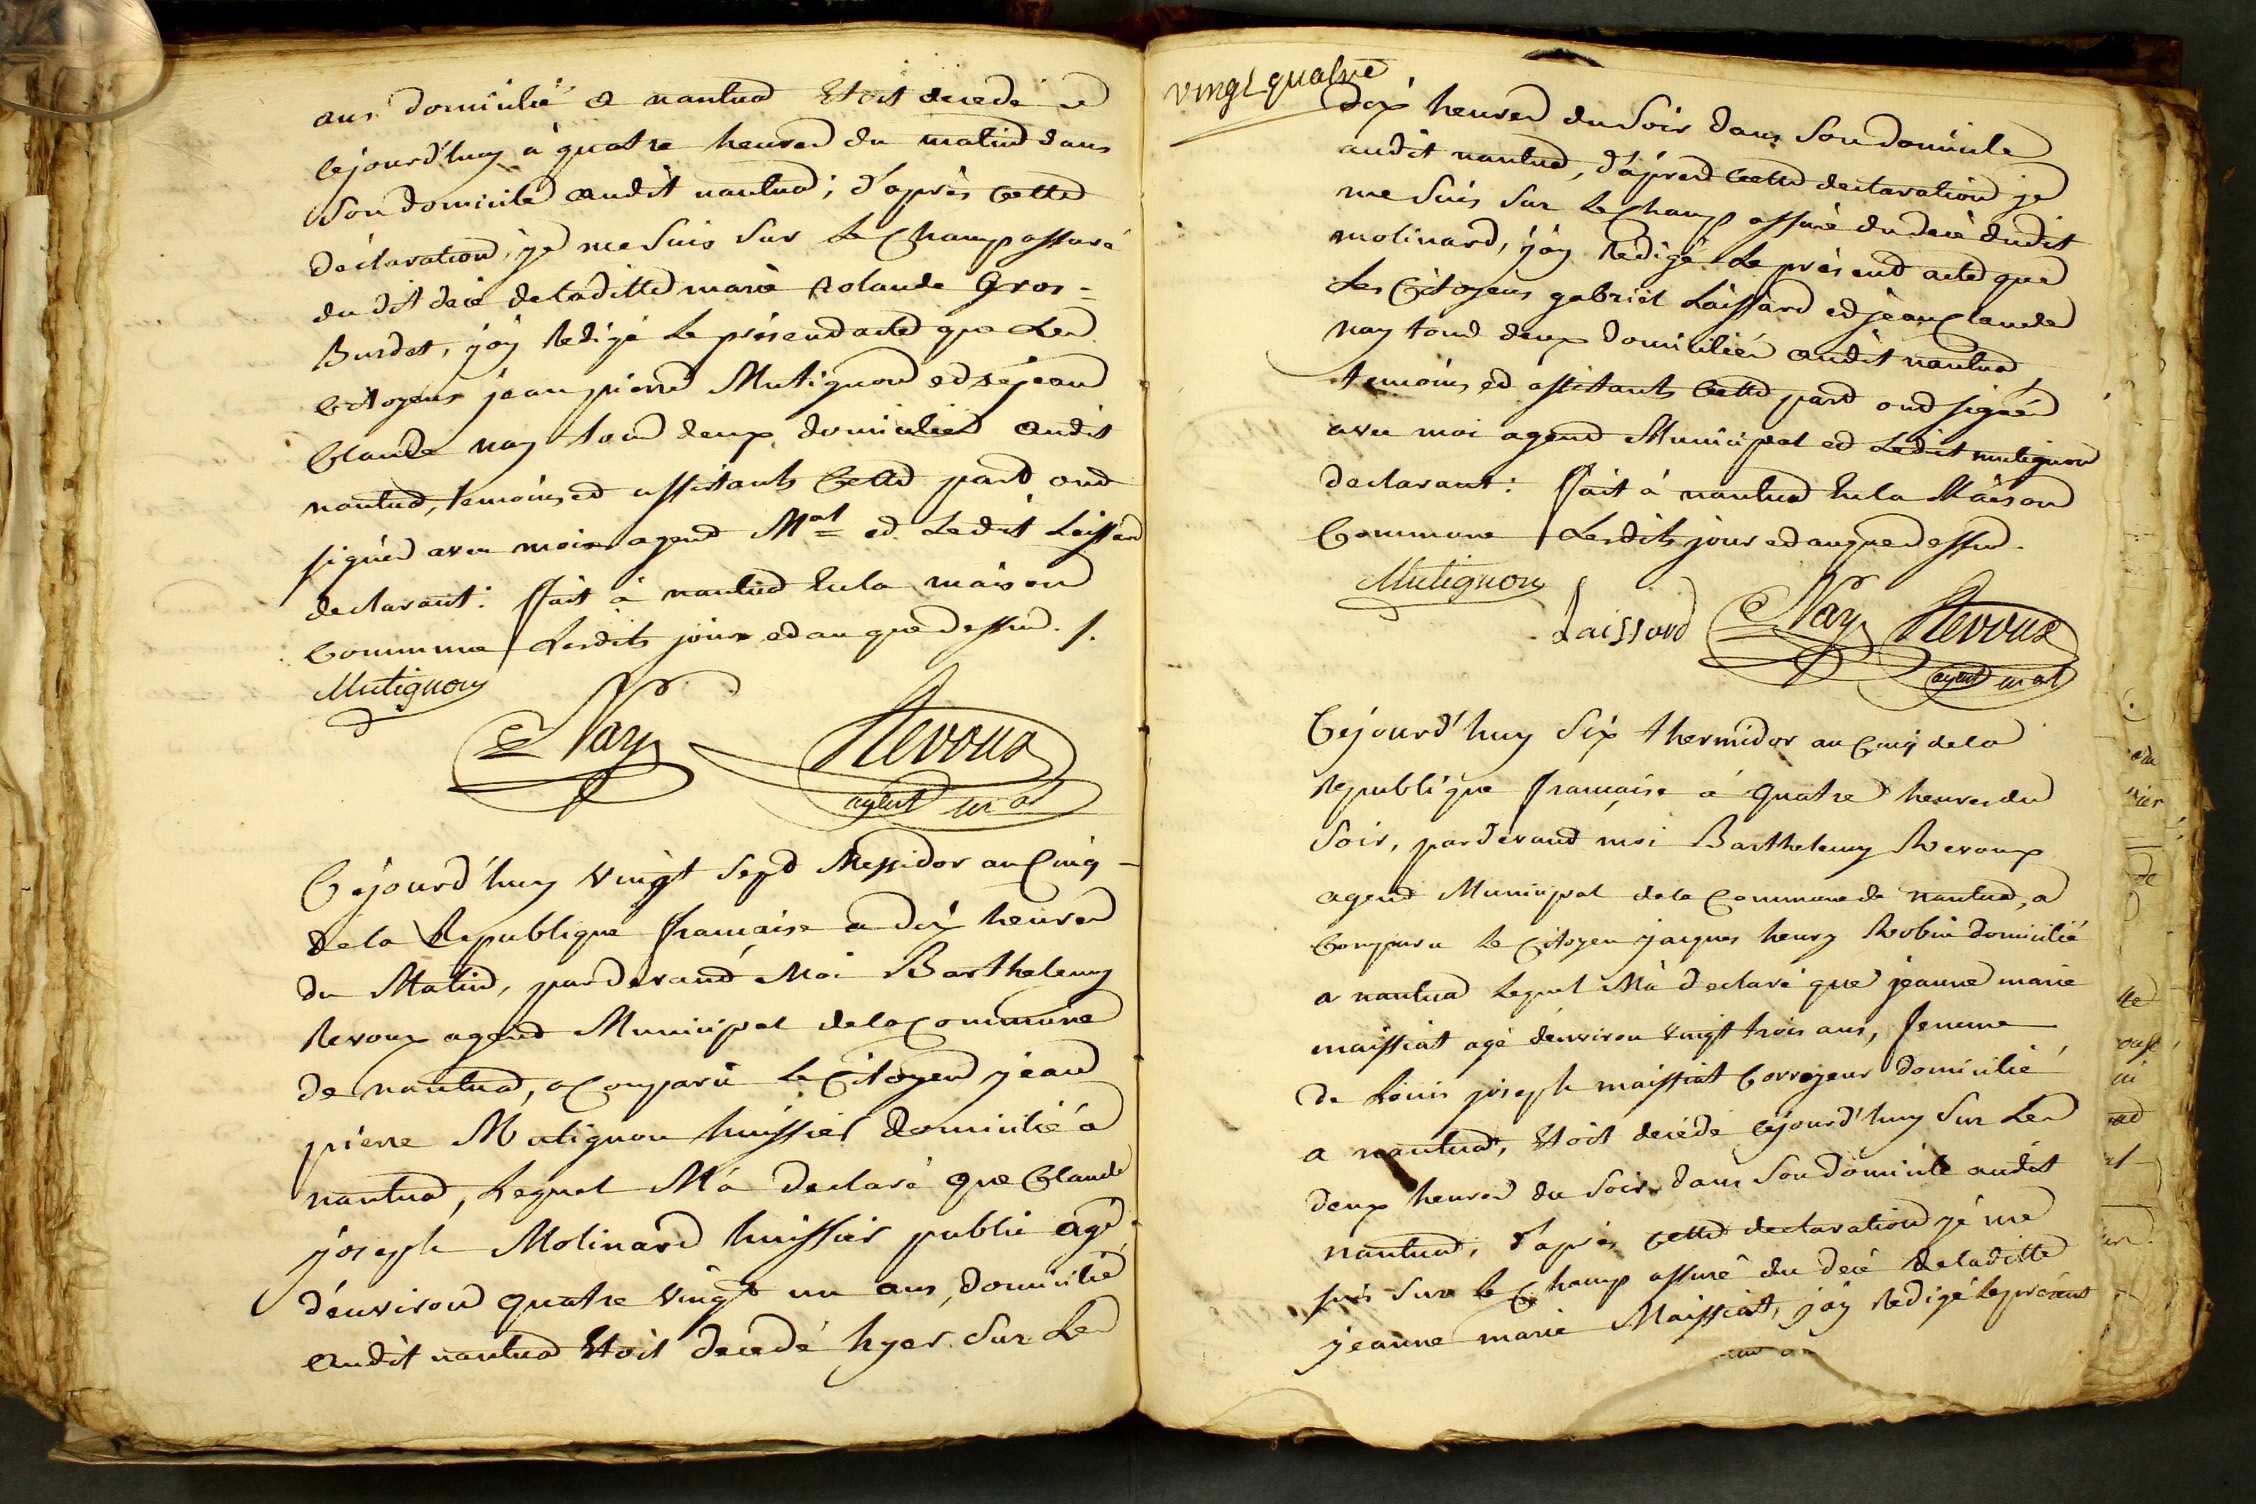 ans domicilié a nantua Etoit decedé ce
cejourd'huy à quatre heures du matin dans
son domicile audit nantua; d'après cette
déclaration, je me suis sur le Champ assuré
du dit decé de laditte marie Rolande Gros=
Burdet, j'ay Rédigé le présent acte que les
Citoyens jean pierre Mutignon et jean
Claude nay tous deux domiciliés audit
nantua, temoins et assistants Cette part ont
signés avec moi agent Mal et Ledit Laissard
declarant: ffait à nantua En la maison
Commune Lesdits jour et an que dessus ./.
Mutignon
C Nay Revoux
agent mal
Cejourd'huy vingt sept Messidor an Cinq
de la Republique francaise a dix heures
du Matin, pardevant Moi Barthelemy
Revoux agent Municipal de la Commune
de nantua, a Comparu le Citoyen jean
pierre Mutignon huissier domicilié a
nantua, Lequel M'a déclaré que Claude
joseph Molinard huissier public agé
d'environ quatre vingt un ans, domicilié
audit nantua Etoit decedé hyer sur Les
vingt quatre
dix heures du soir dans son domicile
audit nantua, d'après Cette declaration je
me suis sur le Champ assuré du decé dudit
molinard, j'ay Rédigé Le présent acte que
Les Citoyens gabriel Laissard et jean Claude
nay tous deux domiciliés audit nantua,
temoins et assistants Cette part ont signés
avec moi agent Municipal et Ledit mutignon
declarant: ffait à nantua En la Maison
Commune Lesdits jour et an que dessus.
Mutignon
Laissard C Nay Revoux
agent mal
Cejourd'huy six thermidor an Cinq de la
Republique francaise à quatre heures du
soir, pardevant moi Barthelemy Revoux
agent Municipal de la Commune de nantua, a
Comparu le Citoyen jacques henry Robin domicilié
a nantua Lequel M'a déclaré que jeanne marie
maissiat agé d'environ vingt trois ans, femme
de Louis joseph maissiat Corroyeur domicilié
a nantua, Etoit decédé cejourd'huy sur Les
deux heures du soir dans son domicile audit
nantua, d'après cette declaration je me
suis sur le Champ assuré du decé de laditte
jeanne marie Maissiat, j'ay Redigé le présent